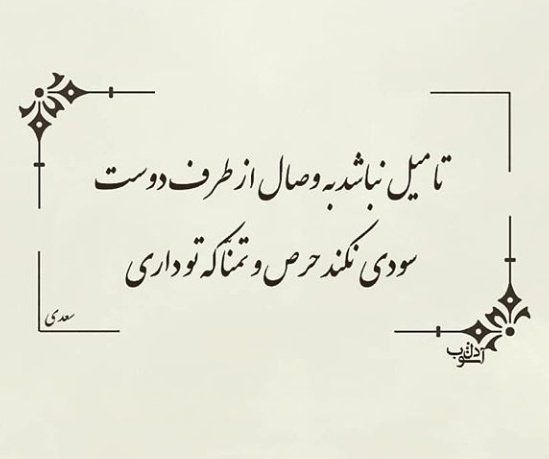 تا میل نباشد به وصال از طرف دوست
سودی نکند حرص و تمنّا که تو داری
سعدی